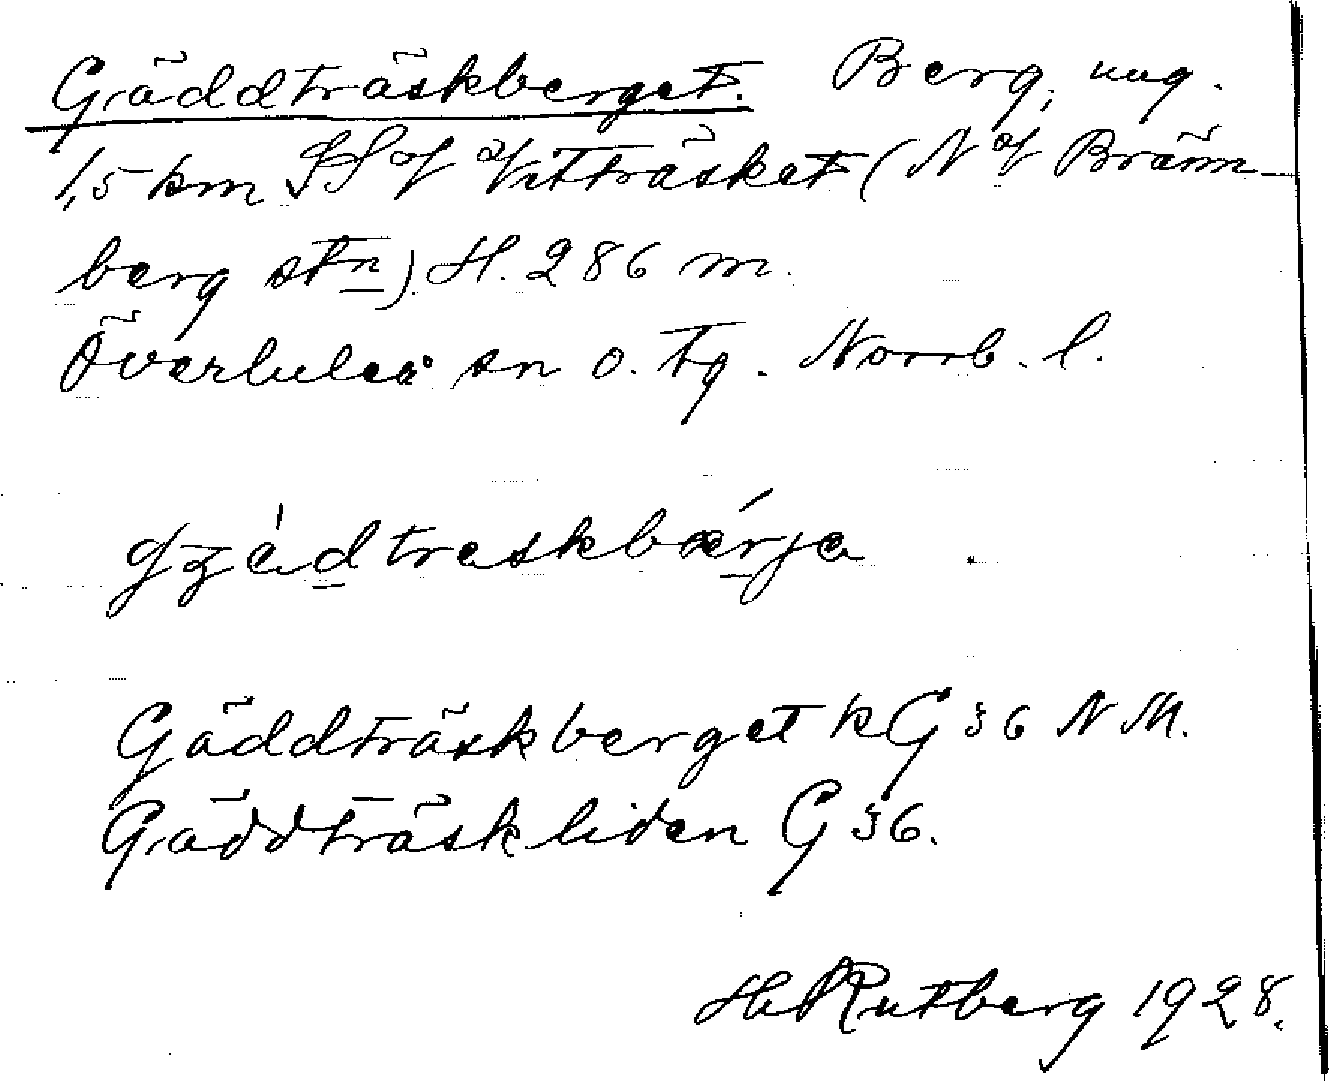 Gäddträskberget. Berg, ung.
1,5 km S of Vitträsket (N of Bränn-
berg stn). H. 286 m.
Överluleå sn o. tg. Norrb. l.
Gäddträskberget kG 36 NM.
Gäddträskliden G 36.
H. Rutberg 1928.